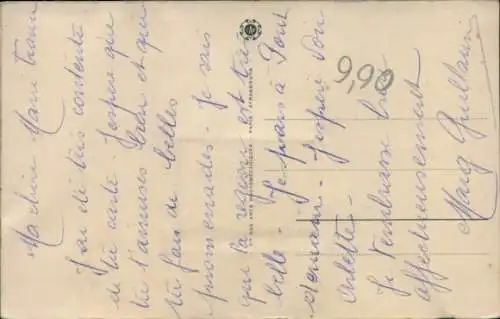 Machère Marie
J'ai été très contente
de ta carte - J'espère que
tu t'amuses bien et que
tu fais de belles
promenades - Je sais
que la région est très
belle - Je pars à Pont
demain - J'espère voir
Arlette -
Je t'embrasse bien
affectueusement
Marg
9,90